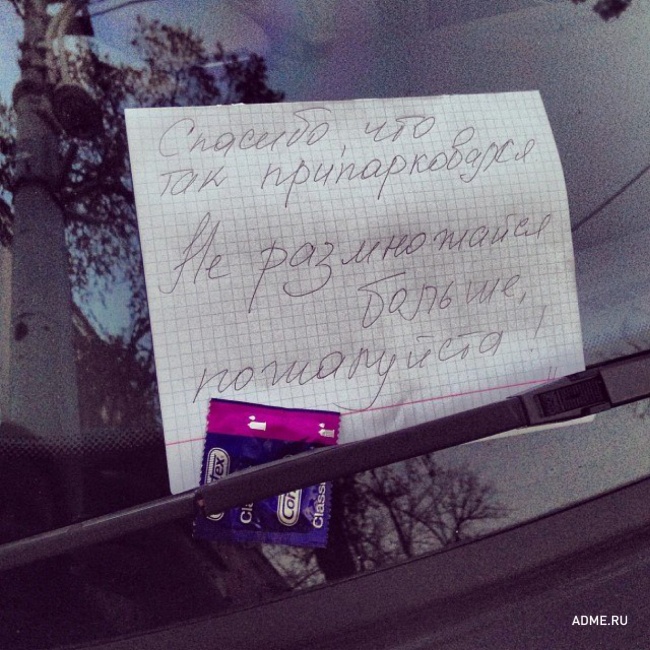 Спасибо, что
так припарковался
Не размножайся
больше,
пожалуйста!
Contex
Classic
ADME.RU